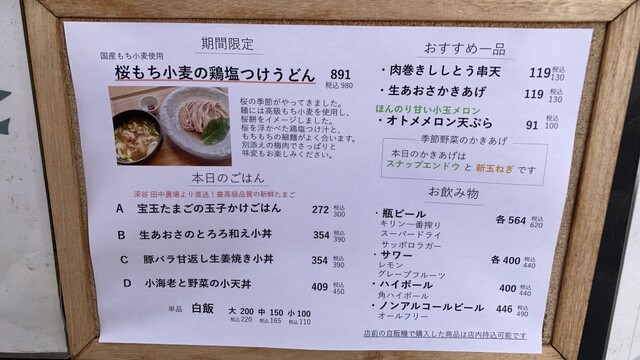 期間限定
国産もち小麦使用
桜もち小麦の鶏塩つけうどん 891
税込 980
桜の季節がやってきました。
麺には高級もち小麦を使用し、
桜餅をイメージしました。
桜を浮かべた鶏塩つけ汁と、
もちもちの細麺がよく合います。
別添えの梅肉でさっぱりと
味変もお楽しみください。
本日のごはん
深谷 田中農場より直送！最高級品質の新鮮たまご
A 宝玉たまごの玉子かけごはん 272 税込 300
B 生あおさのとろろ和え小丼 354 税込 390
C 豚バラ甘返し生姜焼き小丼 354 税込 390
D 小海老と野菜の小天丼 409 税込 450
単品 白飯 大 200 中 150 小 100
税込 220 税込 165 税込 110
おすすめ一品
・肉巻きししとう串天 119 税込 130
・生あおさかきあげ 119 税込 130
ほんのり甘い小玉メロン
・オトメメロン天ぷら 91 税込 100
季節野菜のかきあげ
本日のかきあげは
スナップエンドウ と 新玉ねぎ です
お飲み物
・瓶ビール 各 564 税込 620
キリン一番搾り
スーパードライ
サッポロラガー
・サワー 各 400 税込 440
レモン
グレープフルーツ
・ハイボール 400 税込 440
角ハイボール
・ノンアルコールビール 446 税込 490
オールフリー
店前の自販機で購入した商品は店内持込可能です